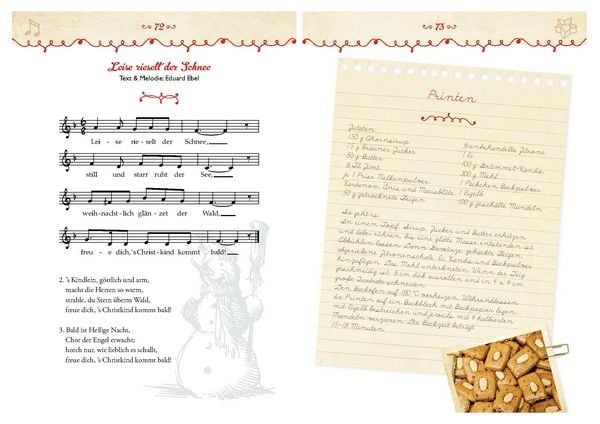 72
Leise rieselt der Schnee
Text & Melodie: Eduard Ebel
Lei - se rie - selt der Schnee,
still und starr ruht der See,
weih - nacht - lich glän - zet der Wald,
freu - e dich, 's Christ - kind kommt bald!
2. 's Kindlein, göttlich und arm,
macht die Herzen so warm,
strahle, du Stern überm Wald,
freue dich, 's Christkind kommt bald!
3. Bald ist Heilige Nacht,
Chor der Engel erwacht;
hoech nur, wie lieblich es schallt,
freue dich, 's Christkind kommt bald!
73
Printen
Zutaten
150 g Ahornsirup
75 g brauner Zucker
50 g Butter
½ TL Zimt
je 1 Prise Nelkenpulver,
Kardamom, Anis und Muskatblüte
50 g getrocknete Feigen
½ unbehandelte Zitrone
1 Ei
100 g Grümmel-Kandis
300 g Mehl
1 Päckchen Backpulver
1 Eigelb
100 g geschälte Mandeln
So geht es:
In einem Topf Sirup, Zucker und Butter erhitzen
und dabei rühren, bis eine glatte Masse entstanden ist.
Abkühlen lassen. Dann Gewürze, gehackte Feigen,
abgeriebene Zitronenschale, Ei, Kandis und Backpulver
hinzufügen. Das Mehl unterkneten. Wenn der Teig
geschmeidig ist, 8 cm dick ausrollen und in 4 x 4 cm
große Quadrate schneiden.
Den Backofen auf 180 °C vorheizen. Währenddessen
die Printen auf ein Backblech mit Backpapier legen,
mit Eigelb bestreichen und jeweils mit 4 halbierten
Mandeln verzieren. Die Backzeit beträgt
15-18 Minuten.